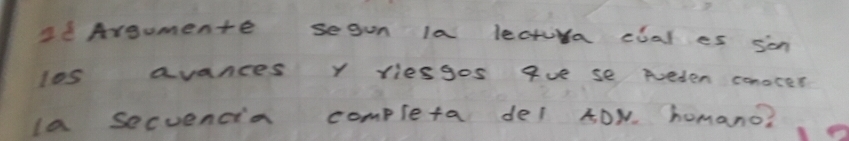 1¿ Argumente segun la lectura cúal es són
los avances y riesgos que se pueden conocer
la secuencia completa del ADN. humano?